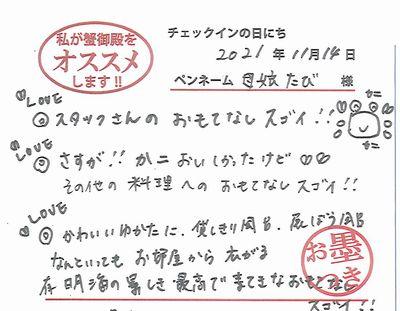 私が蟹御殿を
オススメ
します!!
チェックインの日にち
2021年11月14日
ペンネーム 母娘たび 様
LOVE
◎スタッフさんの おもてなし スゴイ!!
カニ
カニ
LOVE
◎さすが!! カニおいしかったけど
その他の 料理への おもてなしスゴイ!!
LOVE
◎かわいいゆかたに、貸しきり風呂、展ぼう風呂
なんといっても お部屋から 広がる
有明海の景しき 最高で すてきなおもてなし
スゴイ!!
お墨つき